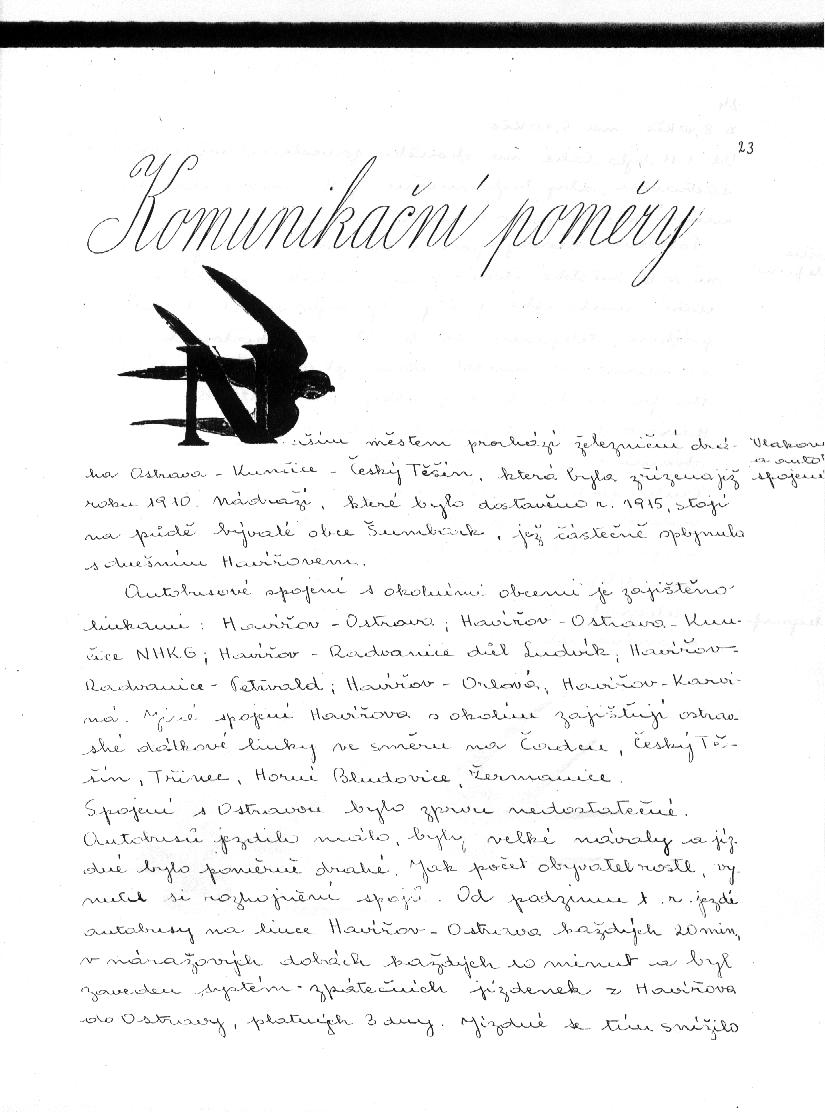 23
Komunikační poměry
N aším městem prochází železniční drá-
Vlakov
a autob
spojení
ha Ostrava - Kunčice - Český Těšín, která byla zřízena již
roku 1910. Nádraží, které bylo dostavěno r. 1915, stojí
na půdě bývalé obce Šumbark, jež částečně splynula
s dnešním Havířovem.
Autobusové spojení s okolními obcemi je zajištěno
linkami: Havířov - Ostrava; Havířov - Ostrava - Kun-
čice NHKG; Havířov - Radvanice důl Ludvík; Havířov -
Radvanice - Petřvald; Havířov - Orlová; Havířov - Karvi-
ná. Jiné spojení Havířova s okolím zajišťují ostrav-
ské dálkové linky ve směru na Čadcu, Český Tě-
šín, Třinec, Horní Bludovice, Žermanice.
Spojení s Ostravou bylo zprvu nedostatečné.
Autobusů jezdilo málo, byly velké návaly a jíz-
dné bylo poměrně drahé. Jak počet obyvatel rostl, vy-
nutil si rozhojnění spojů. Od podzimu t. r. jezdí
autobusy na lince Havířov - Ostrava každých 20 min,
v nárazových dobách každých 10 minut a byl
zaveden systém zpátečních jízdenek z Havířova
do Ostravy, platných 3 dny. Jízdné se tím snížilo